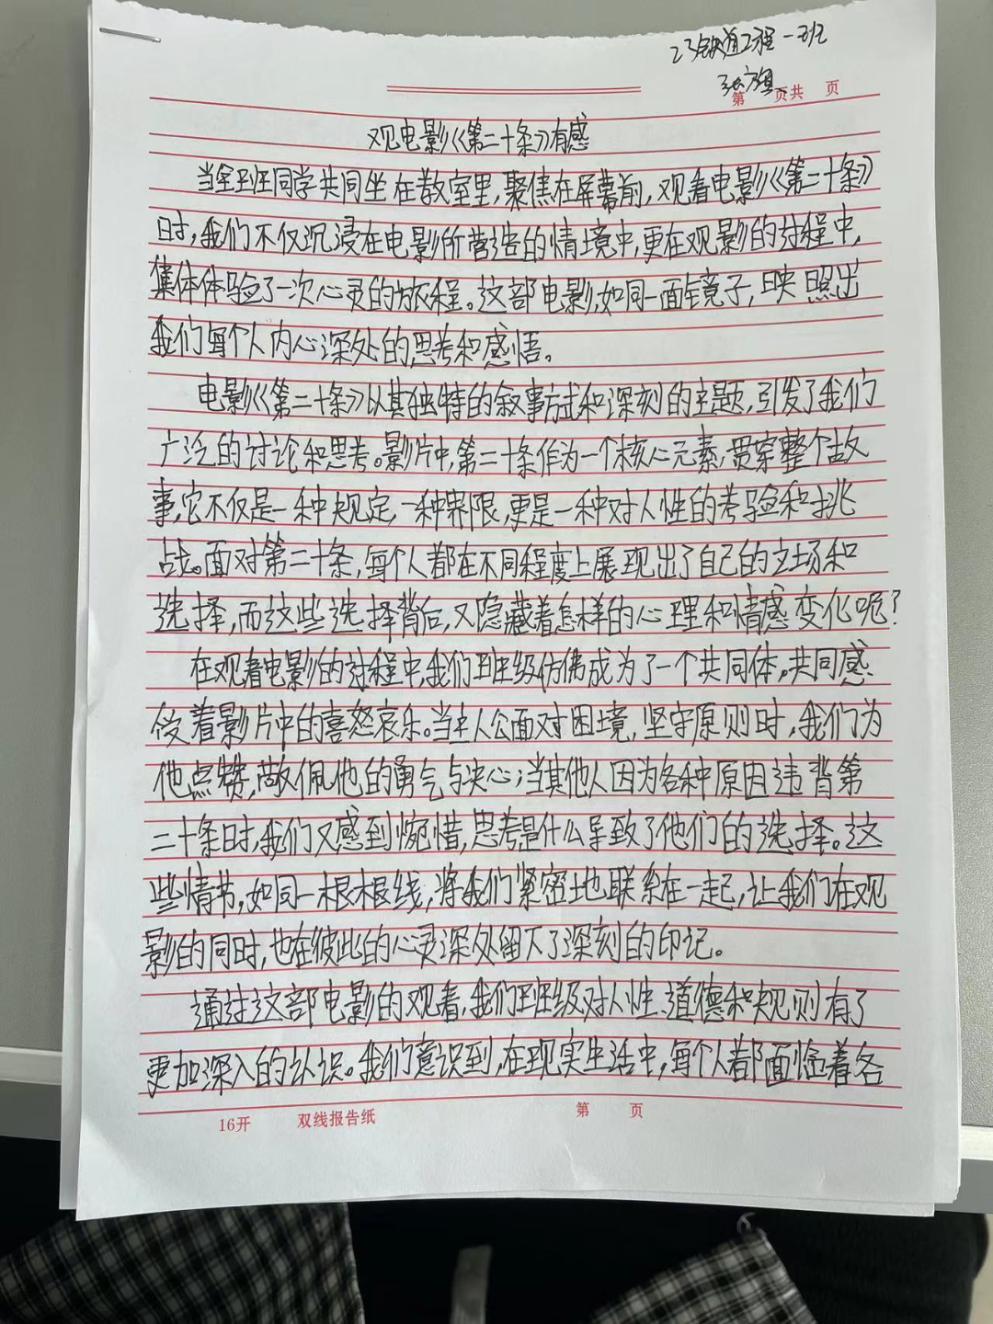 23铁道工程一班
张方奥
第 页共 页
观电影《第二十条》有感
当全班同学共同坐在教室里,聚焦在屏幕前,观看电影《第二十条》
时,我们不仅沉浸在电影所营造的情境中,更在观影的过程中,
集体体验了一次心灵的旅程。这部电影,如同一面镜子,映照出
我们每个人内心深处的思考和感悟。
电影《第二十条》以其独特的叙事方式和深刻的主题,引发了我们
广泛的讨论和思考。影片中,第二十条作为一个核心元素,贯穿整个故
事,它不仅是一种规定,一种界限,更是一种对人性的考验和挑
战。面对第二十条,每个人都在不同程度上展现出了自己的立场和
选择,而这些选择背后,又隐藏着怎样的心理和情感变化呢?
在观看电影的过程中,我们班级仿佛成为了一个共同体。共同感
受着影片中的喜怒哀乐。当主人公面对困境,坚守原则时,我们为
他点赞,敬佩他的勇气与决心;当其他人因为各种原因违背第
二十条时,我们又感到惋惜,思考是什么导致了他们的选择。这
些情节,如同一根根线,将我们紧密地联系在一起,让我们在观
影的同时,也在彼此的心灵深处留下了深刻的印记。
通过这部电影的观看,我们班级对人性、道德和规则有了
更加深入的认识。我们意识到,在现实生活中,每个人都面临着各
16开 双线报告纸 第 页